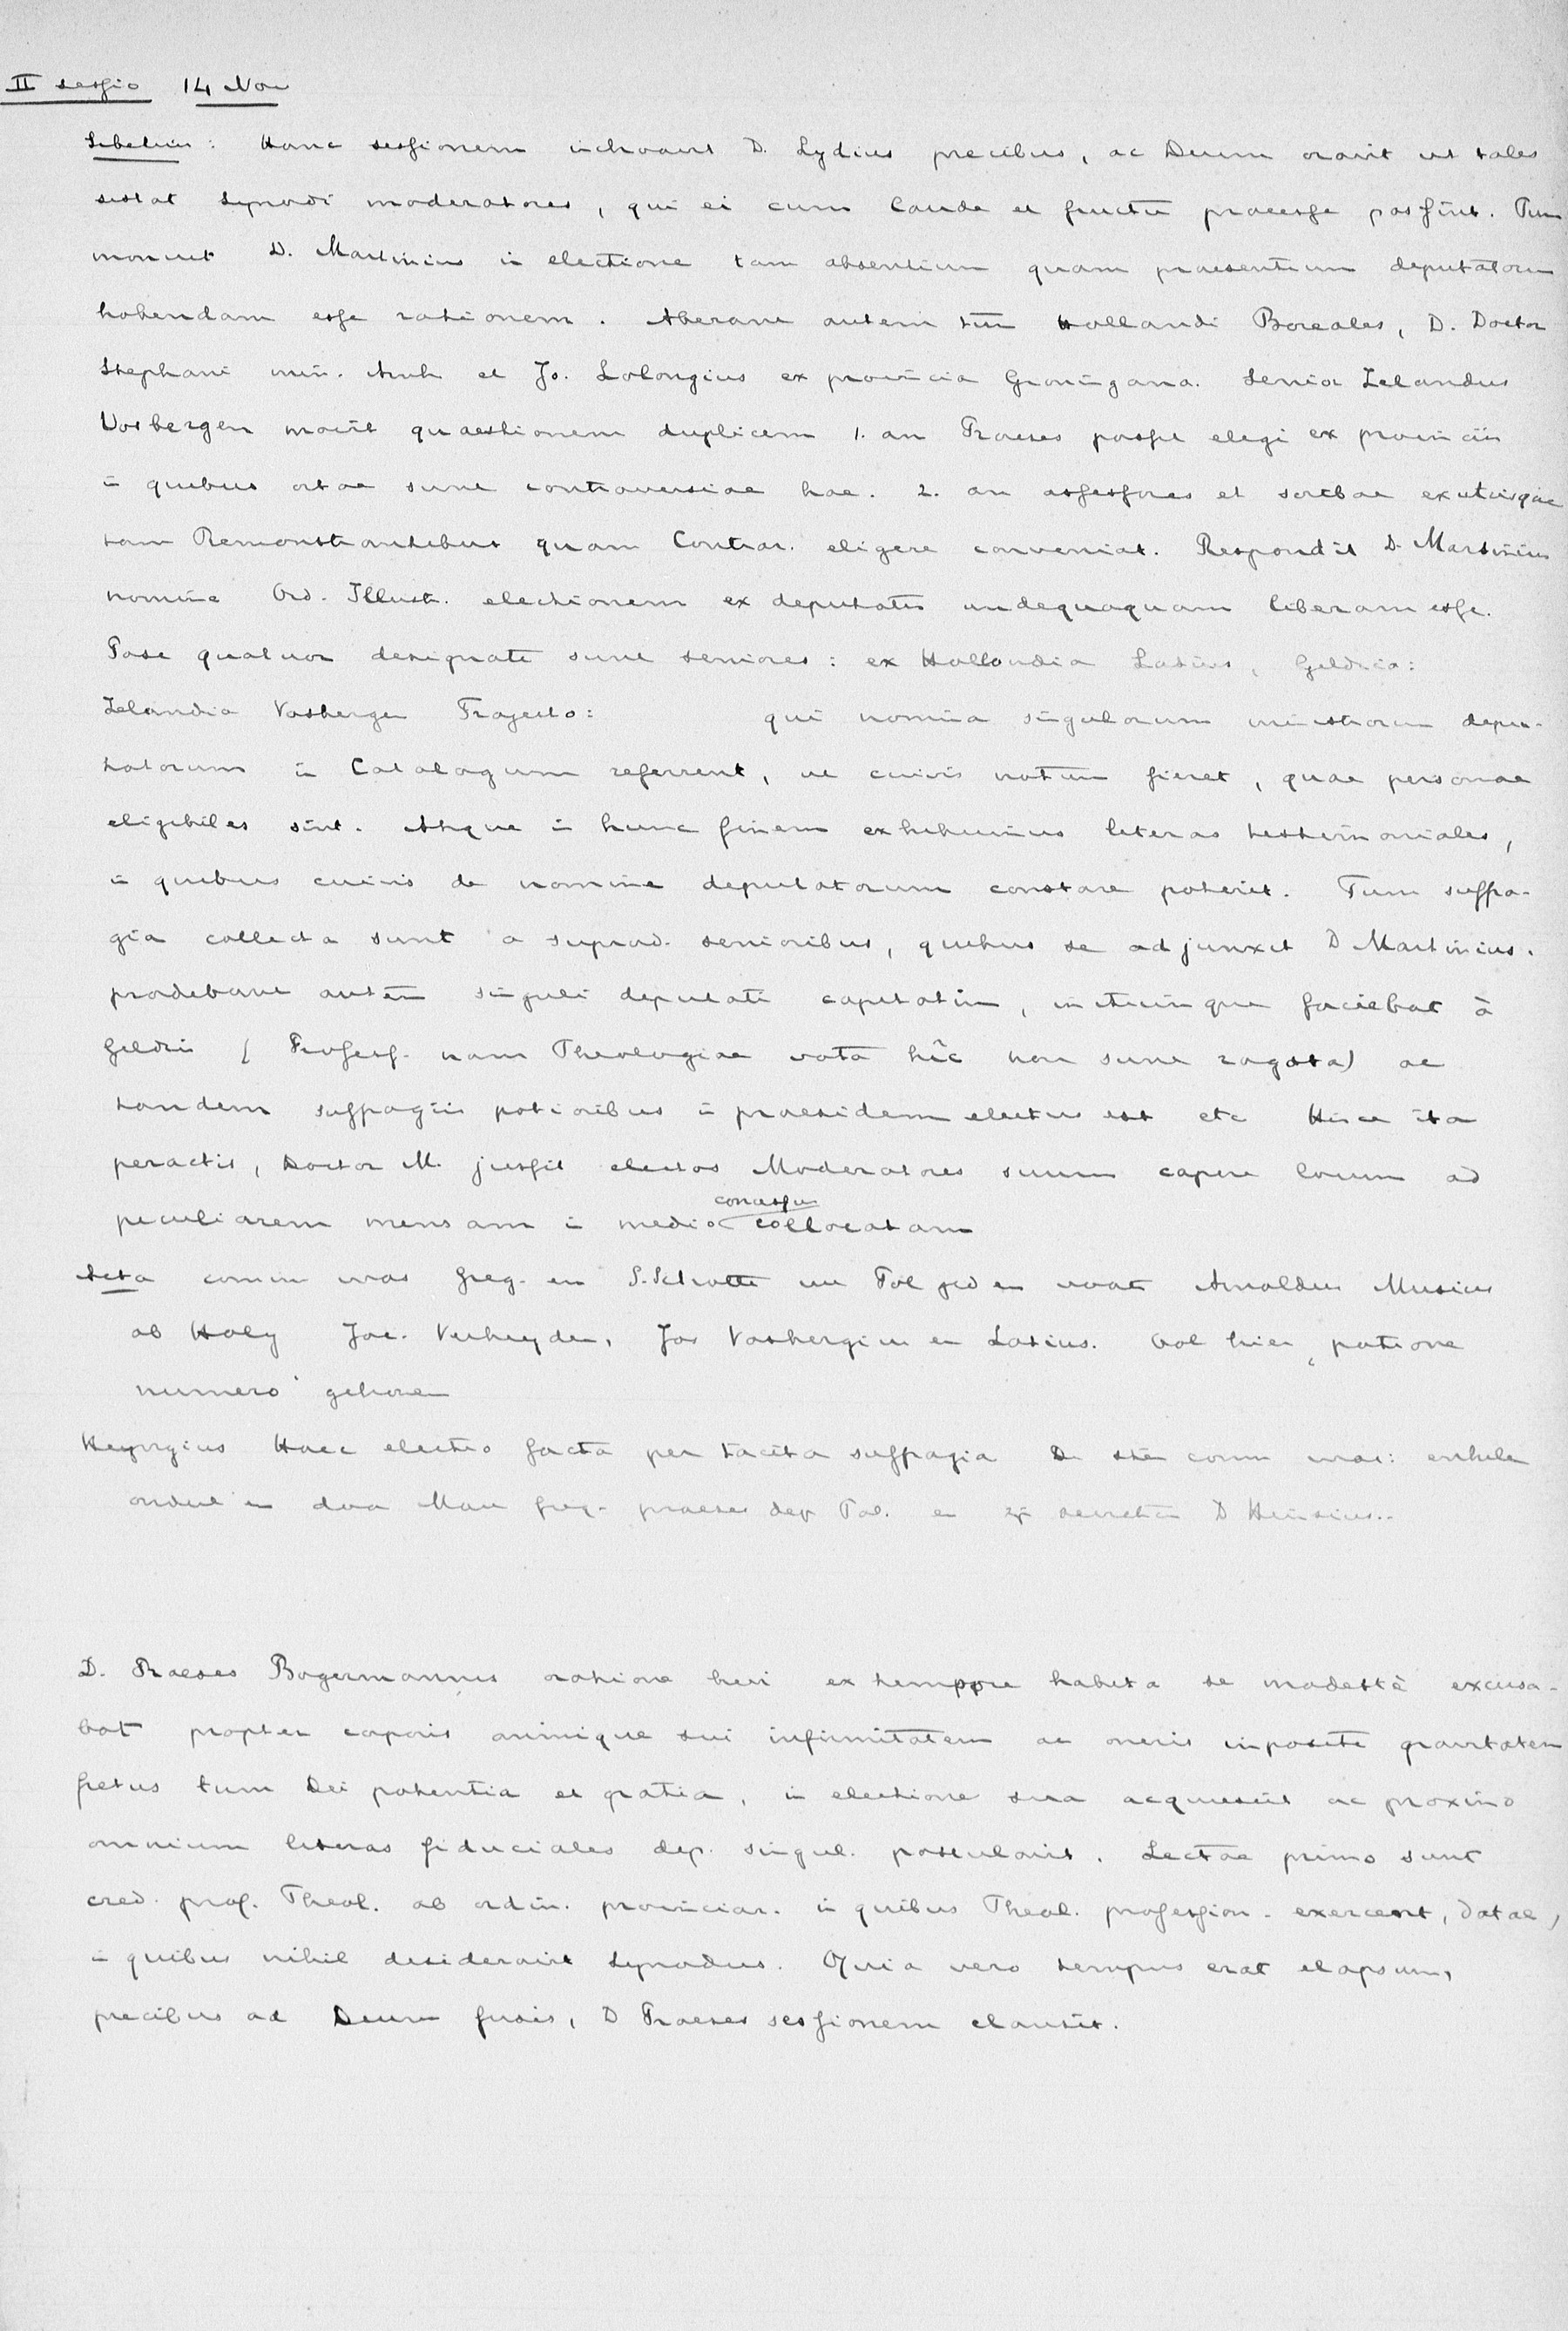 II sessio 14 Nov
Sibelius: Hanc sessionem inchoavit D. Lydius precibus, ac Deum oravit ut tales
sistat synodi moderatores, qui ei cum laude et fructu praeesse possint. Tum
monuit D. Martinius in electione tam absentium quam praesentium deputatorum
habendam esse rationem. Aberant autem tum Hollandi Boreales, D. Doctor
Stephani min. et Jo. Lolongius ex provincia Groningana. Senior Zelandus
Vosbergen movit quaestionem duplicem 1. an Praeses posset elegi ex provinciis
in quibus ortae sunt controversiae hae. 2. an assessores et scribae ex utrisque
tam Remonstrantibus quam Contrar. eligere conveniat. Respondit D. Martinius
nomine Ord. Illustr. electionem ex deputatis undequaquam liberam esse.
Post quatuor designati sunt seniores: ex Hollandia Latius, Geldria:
Zelandia Vosbergen Trajecto: qui nomina singulorum ministrorum depu-
tatorum in Catalogum referrent, ut cuivis notum fieret, quae personae
eligibiles sint. Atque in hunc finem exhibuimus literas testimoniales,
in quibus cuivis de nomine deputatorum constare poterit. Tum suffra-
gia collecta sunt a suprad. senioribus, quibus se adjunxit D Martinius.
prodebant autem singuli deputati capitatim, initiumque faciebat à
Geldris (Profess. nam Theologiae vota hîc non sunt rogata) ac
tandem suffragiis potioribus in praesidem electus est etc Hisce ita
peractis, Doctor M. jussit electos Moderatores suum capere locum ad
peculiarem mensam in medio consessu collocatam
Acta comm was Greg. en S. Schotte en Arnoldus Musius
ab Holy Jac. Verheyden, Jos Vosbergium en Latius. hier patrone
numero gehoren
Heyngius Haec electio facta per tacita suffragia D. comm was:
Mau Greg. praeses dep Pol. en D Heinsius..
D. Praeses Bogermannus oratione heri ex tempore habita se modestè excusa-
bat propter corporis animique sui infirmitatem ac oneris impositi gravitatem
fretus tum Dei potentia et gratia, in electione sua acquiescit ac proximo
omnium literas fiduciales dep. singul. postulavit. Lectae primo sunt
cred. prof. Theol. ab ordin. provinciar. in quibus Theol. profession. exercent, datae,
in quibus nihil desideravit Synodus. Quia vero tempus erat elapsum,
precibus ad Deum fusis, D Praeses sessionem clausit.